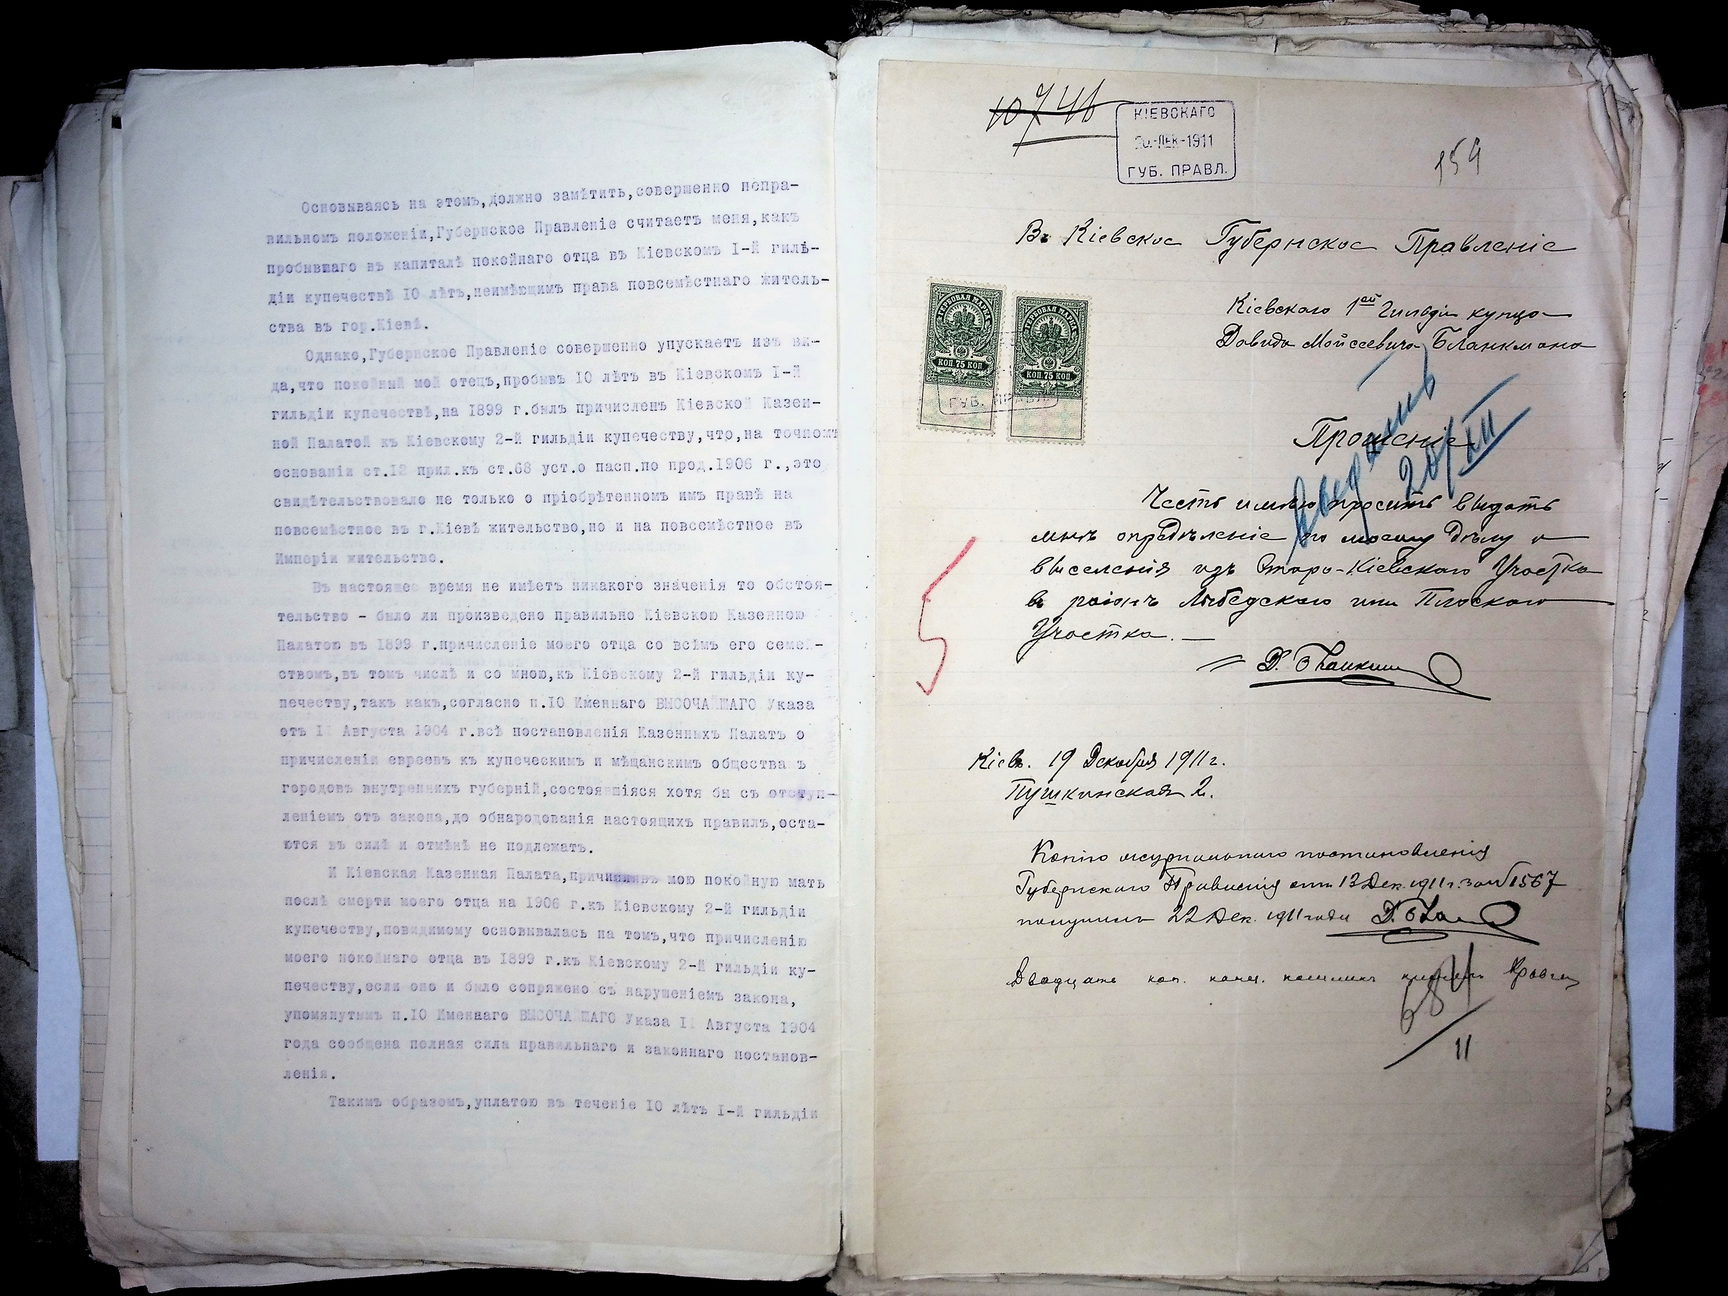 Основываясь на этомъ,должно замѣтить,совершенно непра-
вильномъ положеніи,Губернское Правленіе считаетъ меня,какъ
пробывшаго въ капиталѣ покойнаго отца въ Кіевскомъ I-й гиль-
діи купечествѣ 10 лѣтъ,неимѣющимъ права повсемѣстнаго житель-
ства въ гор.Кіевѣ.
Однако,Губернское Правленіе совершенно упускаетъ изъ ви-
да,что покойный мой отецъ,пробывъ 10 лѣтъ въ Кіевскомъ I-й
гильдіи купечествѣ,на 1899 г.былъ причисленъ Кіевской Казен-
ной Палатой къ Кіевскому 2-й гильдіи купечеству,что,на точномъ
основаніи ст.12 прил.къ ст.68 уст.о пасп.по прод.1906 г.,это
свидѣтельствовало не только о пріобрѣтенномъ имъ правѣ на
повсемѣстное въ г.Кіевѣ жительство,но и на повсемѣстное въ
Имперіи жительство.
Въ настоящее время не имѣетъ никакого значенія то обстоя-
тельство - было ли произведено правильно Кіевскою Казенною
Палатою въ 1899 г.причисленіе моего отца со всѣмъ его семей-
ствомъ,въ томъ числѣ и со мною,къ Кіевскому 2-й гильдіи ку-
печеству,такъ какъ,согласно п.10 Именнаго ВЫСОЧАЙШАГО Указа
отъ 11 Августа 1904 г.всѣ постановленія Казенныхъ Палатъ о
причисленіи евреевъ къ купеческимъ и мѣщанскимъ обществамъ
городовъ внутреннихъ губерній,состоявшіяся хотя бы съ отступ-
леніемъ отъ закона,до обнародованія настоящихъ правилъ,оста-
ются въ силѣ и отмѣнѣ не подлежатъ.
И Кіевская Казенная Палата,причисливъ мою покойную мать
послѣ смерти моего отца на 1906 г.къ Кіевскому 2-й гильдіи
купечеству,повидимому основывалась на томъ,что причисленію
моего покойнаго отца въ 1899 г.къ Кіевскому 2-й гильдіи ку-
печеству,если оно и было сопряжено съ нарушеніемъ закона,
упомянутымъ п.10 Именнаго ВЫСОЧАЙШАГО Указа 11 Августа 1904
года сообщена полная сила правильнаго и законнаго постанов-
ленія.
Такимъ образомъ,уплатою въ теченіе 10 лѣтъ I-й гильдіи
10746
КІЕВСКАГО
20.-ДЕК-1911
ГУБ. ПРАВЛ.
159
Въ Кіевское Губернское Правленіе
Кіевскаго 1ой Гильдіи купца
Давида Мойсеевича Бланкмана
ГЕРБОВАЯ МАРКА
КОП. 75 КОП
ГЕРБОВАЯ МАРКА
КОП. 75 КОП
ГУБ. ПРАВЛ.
Прошеніе
20/XII
Честь имѣю просить выдать
мнѣ опредѣленіе по моему дѣлу о
выселенія изъ Старо-Кіевскаго Участка
въ районъ Лыбедскаго или Плоскаго
Участка. —
Д. Бланкман
5
Кіевъ. 19 Декабря 1911 г.
Пушкинская 2.
Копію журнальнаго постановленія
Губернскаго Правленія отъ 13 Дек. 1911 г. за № 1567
получилъ 22 Дек. 1911 года Д. Блан
Двадцать коп. канц.
684
11